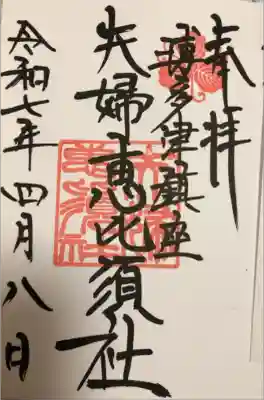 奉拝
博多津鎮座
夫婦恵比須社
令和七年四月八日